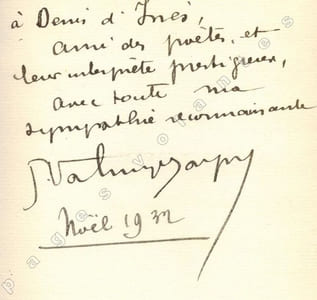 à Denis d'Inès,
ami des poètes, et
leur interprète prestigieux,
avec toute ma
sympathie reconnaissante
J Valmy-Baysse
Noël 1932